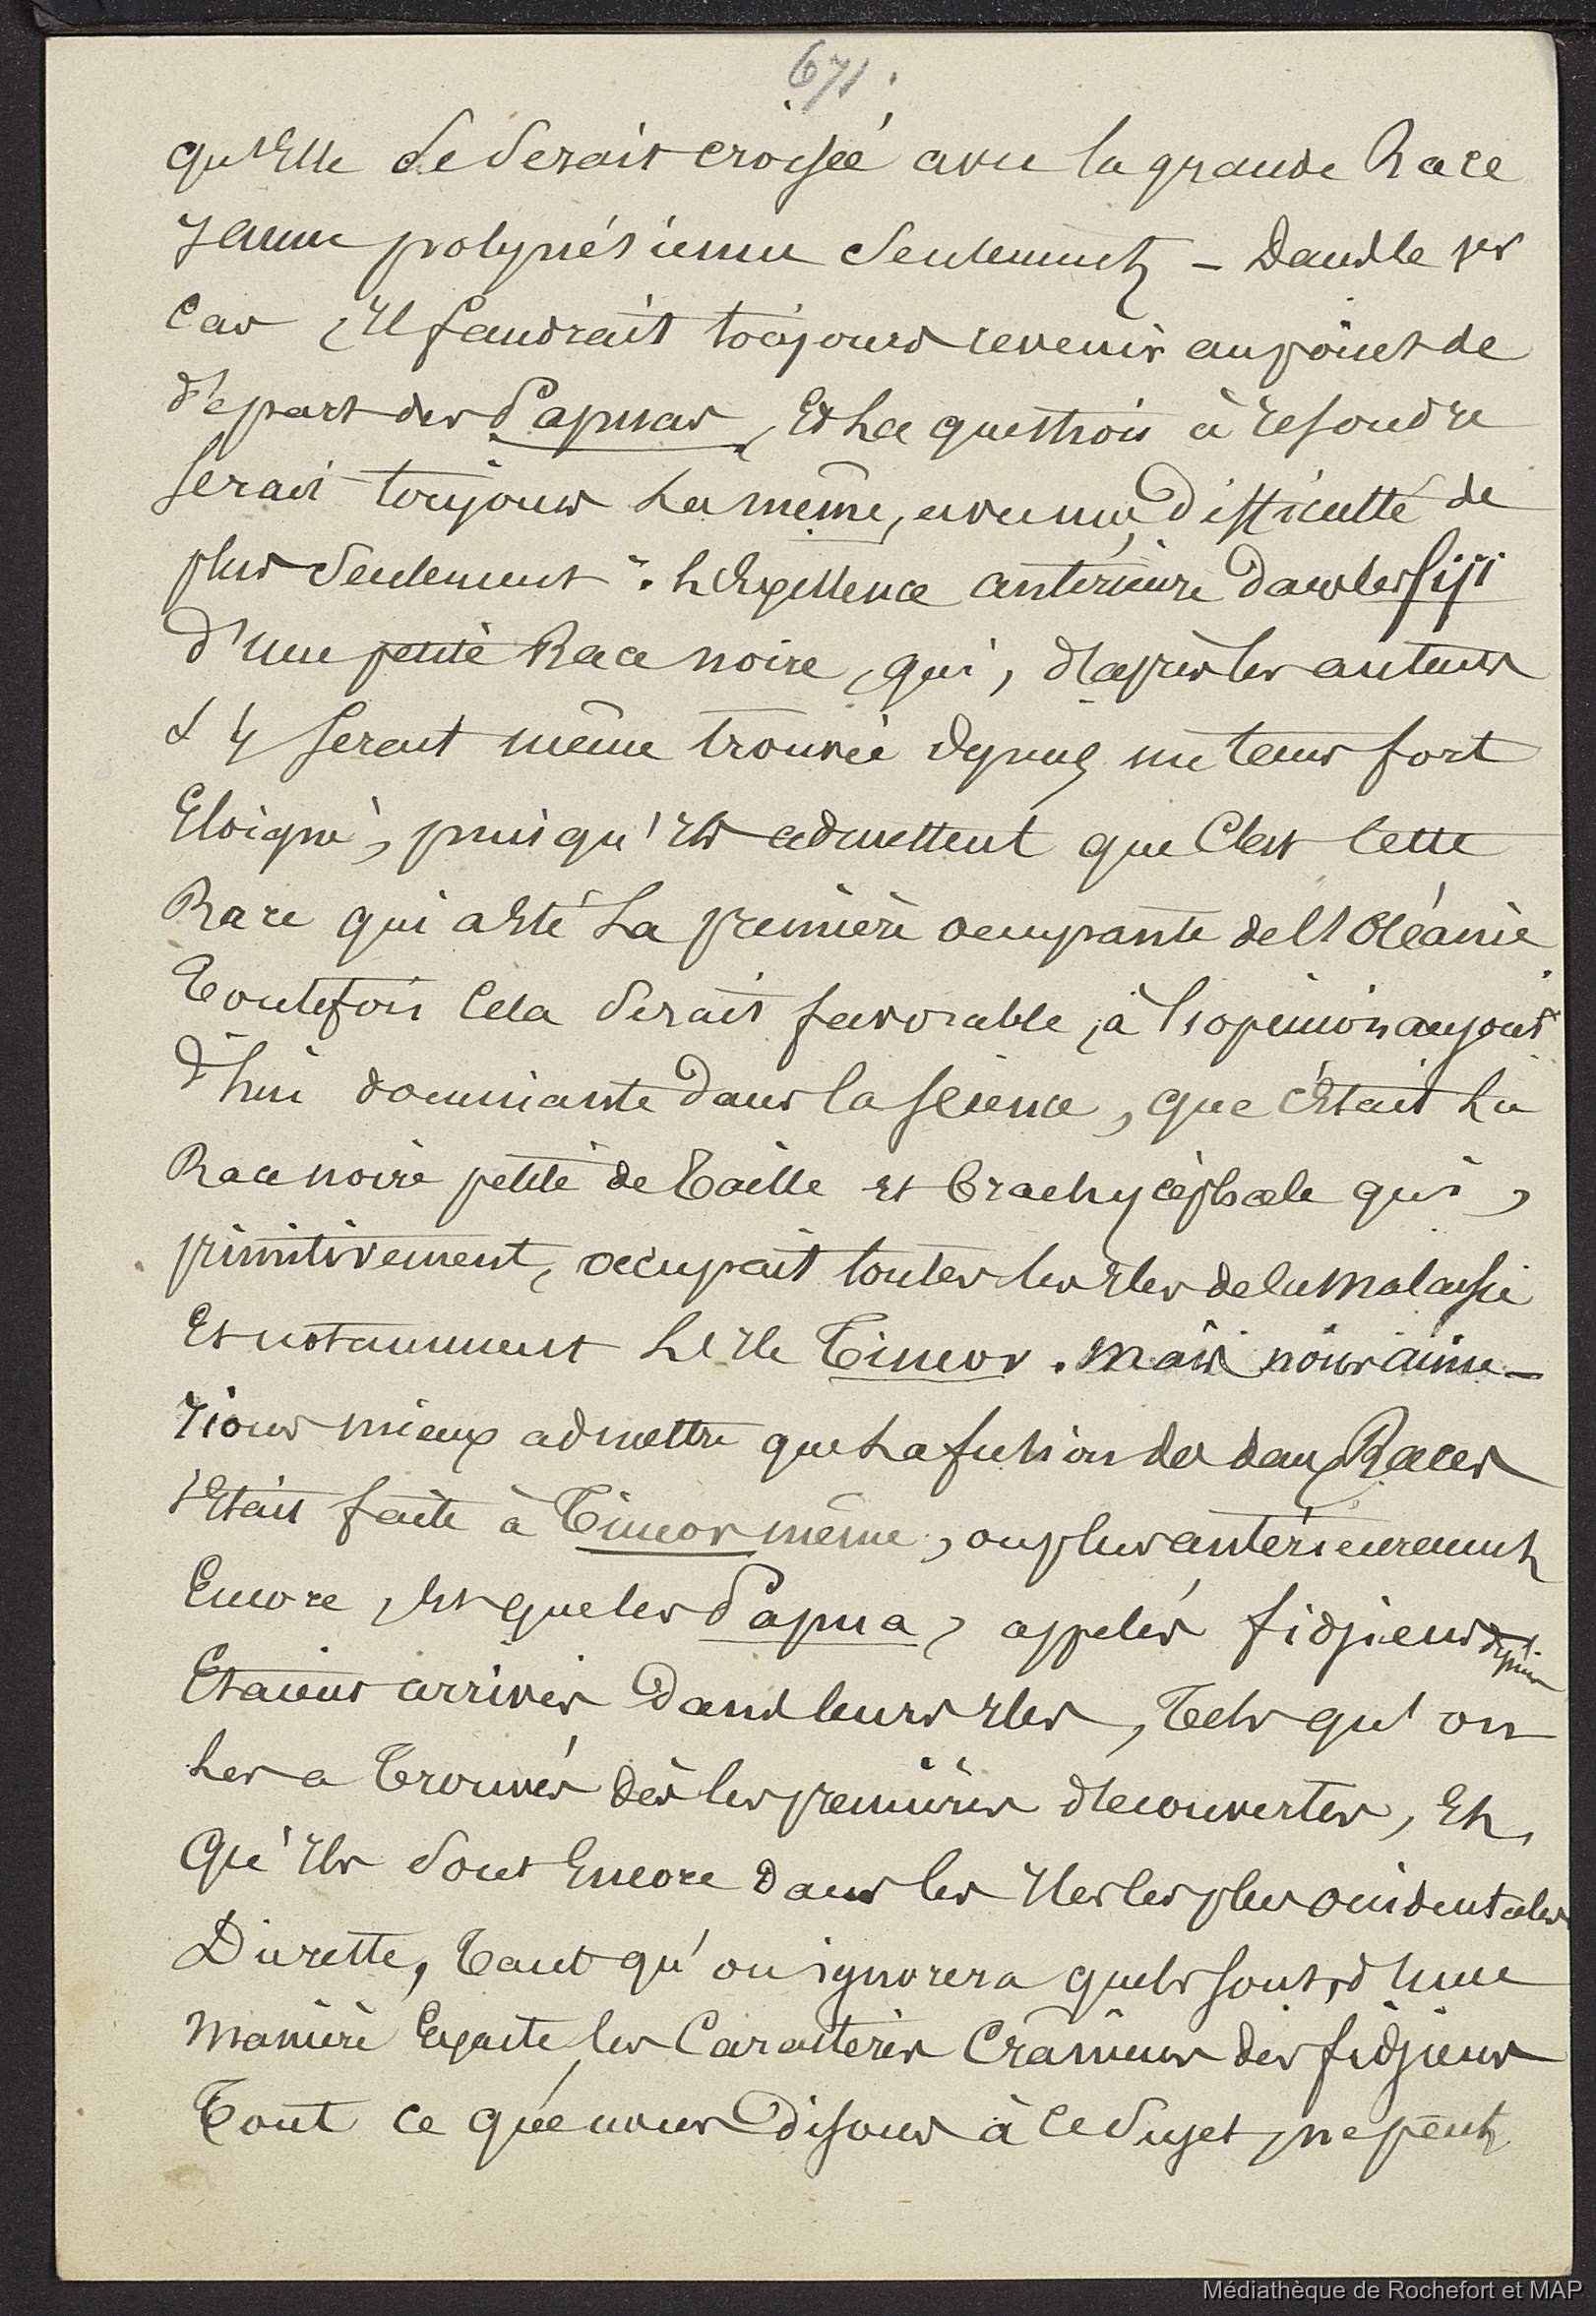 671.
qu'Elle se serait croisée avec la grande Race
Jaune polynésienne seulement – Dans le 1er
Cas, Il faudrait toujours revenir au point de
départ des Papuas, Et La question à résoudre
serait toujours La même, avec une difficulté de
plus seulement : L'Existence antérieure dans les fiji
d'une petite Race noire, qui, d'après les auteurs
s'y serait même trouvée depuis un tems fort
Eloigné, puisqu'ils admettent que C'est Cette
Race qui a Eté La première occupante de l'Océanie
Toutefois Cela serait favorable, à l'opinion aujour
d'hui dominante dans la science, que c'Etait La
Race noire petite de Taille et brachycéphale qui,
primitivement, occupait toutes les Iles de la Malaisie
Et notamment L'Ile Timor. Mais nous aime-
rions mieux admettre que La fusion des deux Races
s'Etait faite à Timor même, ou plus antérieurement
Encore, Et que les Papua, appelés fidjiens depuis
Etaient arrivés dans leurs Iles, Tels qu'on
Les a Trouvés dès les premières découvertes, Et,
Qu'Ils sont Encore dans les Iles les plus occidentales
Du reste, Tant qu'on ignorera quels sont, d'une
Manière Exacte, les Caractères Crâniens des fidjiens
Tout ce que nous disons à ce sujet, ne peut
Médiathèque de Rochefort et MAP